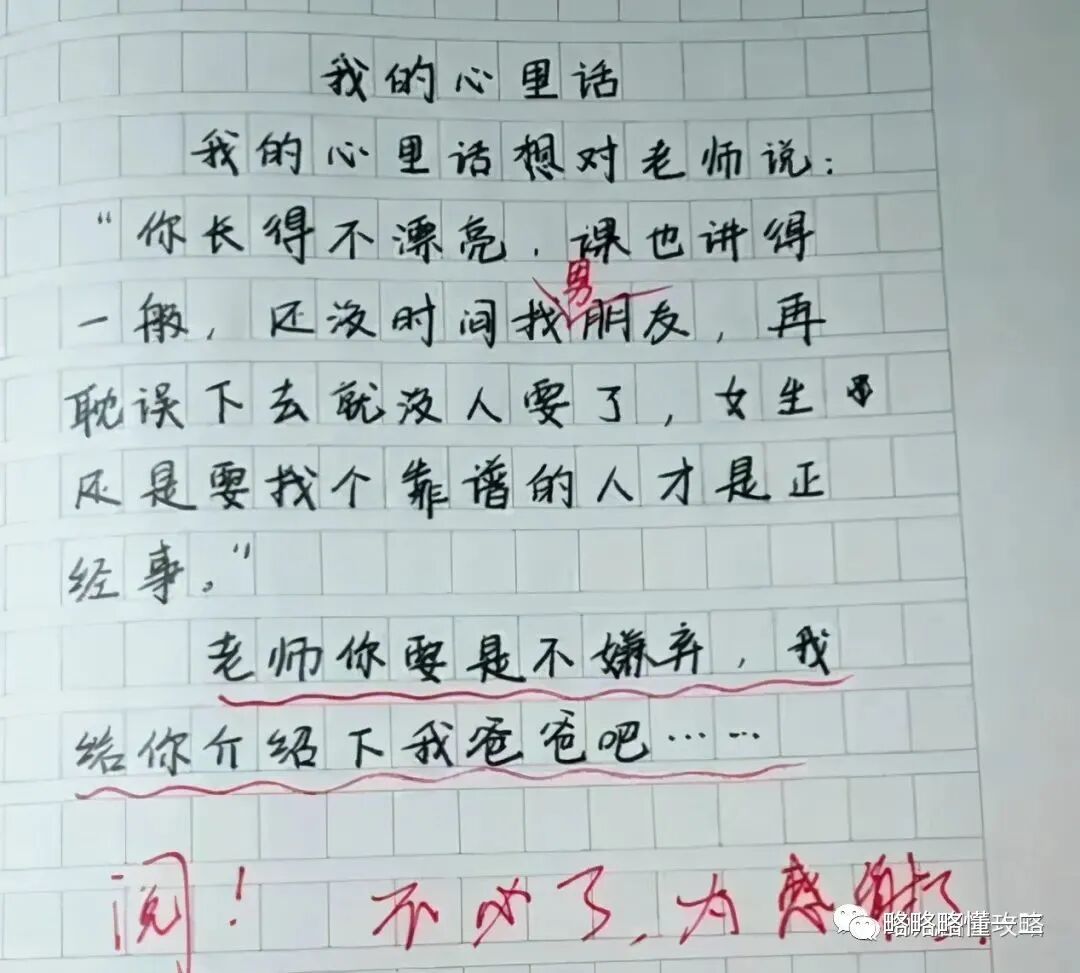 我的心里话
我的心里话想对老师说：
“你长得不漂亮，课也讲得
男
一般，还没时间找朋友，再
耽误下去就没人要了，女生
还是要找个靠谱的人才是正
经事。”
老师你要是不嫌弃，我
给你介绍下我爸爸吧……
阅！ 不必了，为感谢
略略略懂攻略